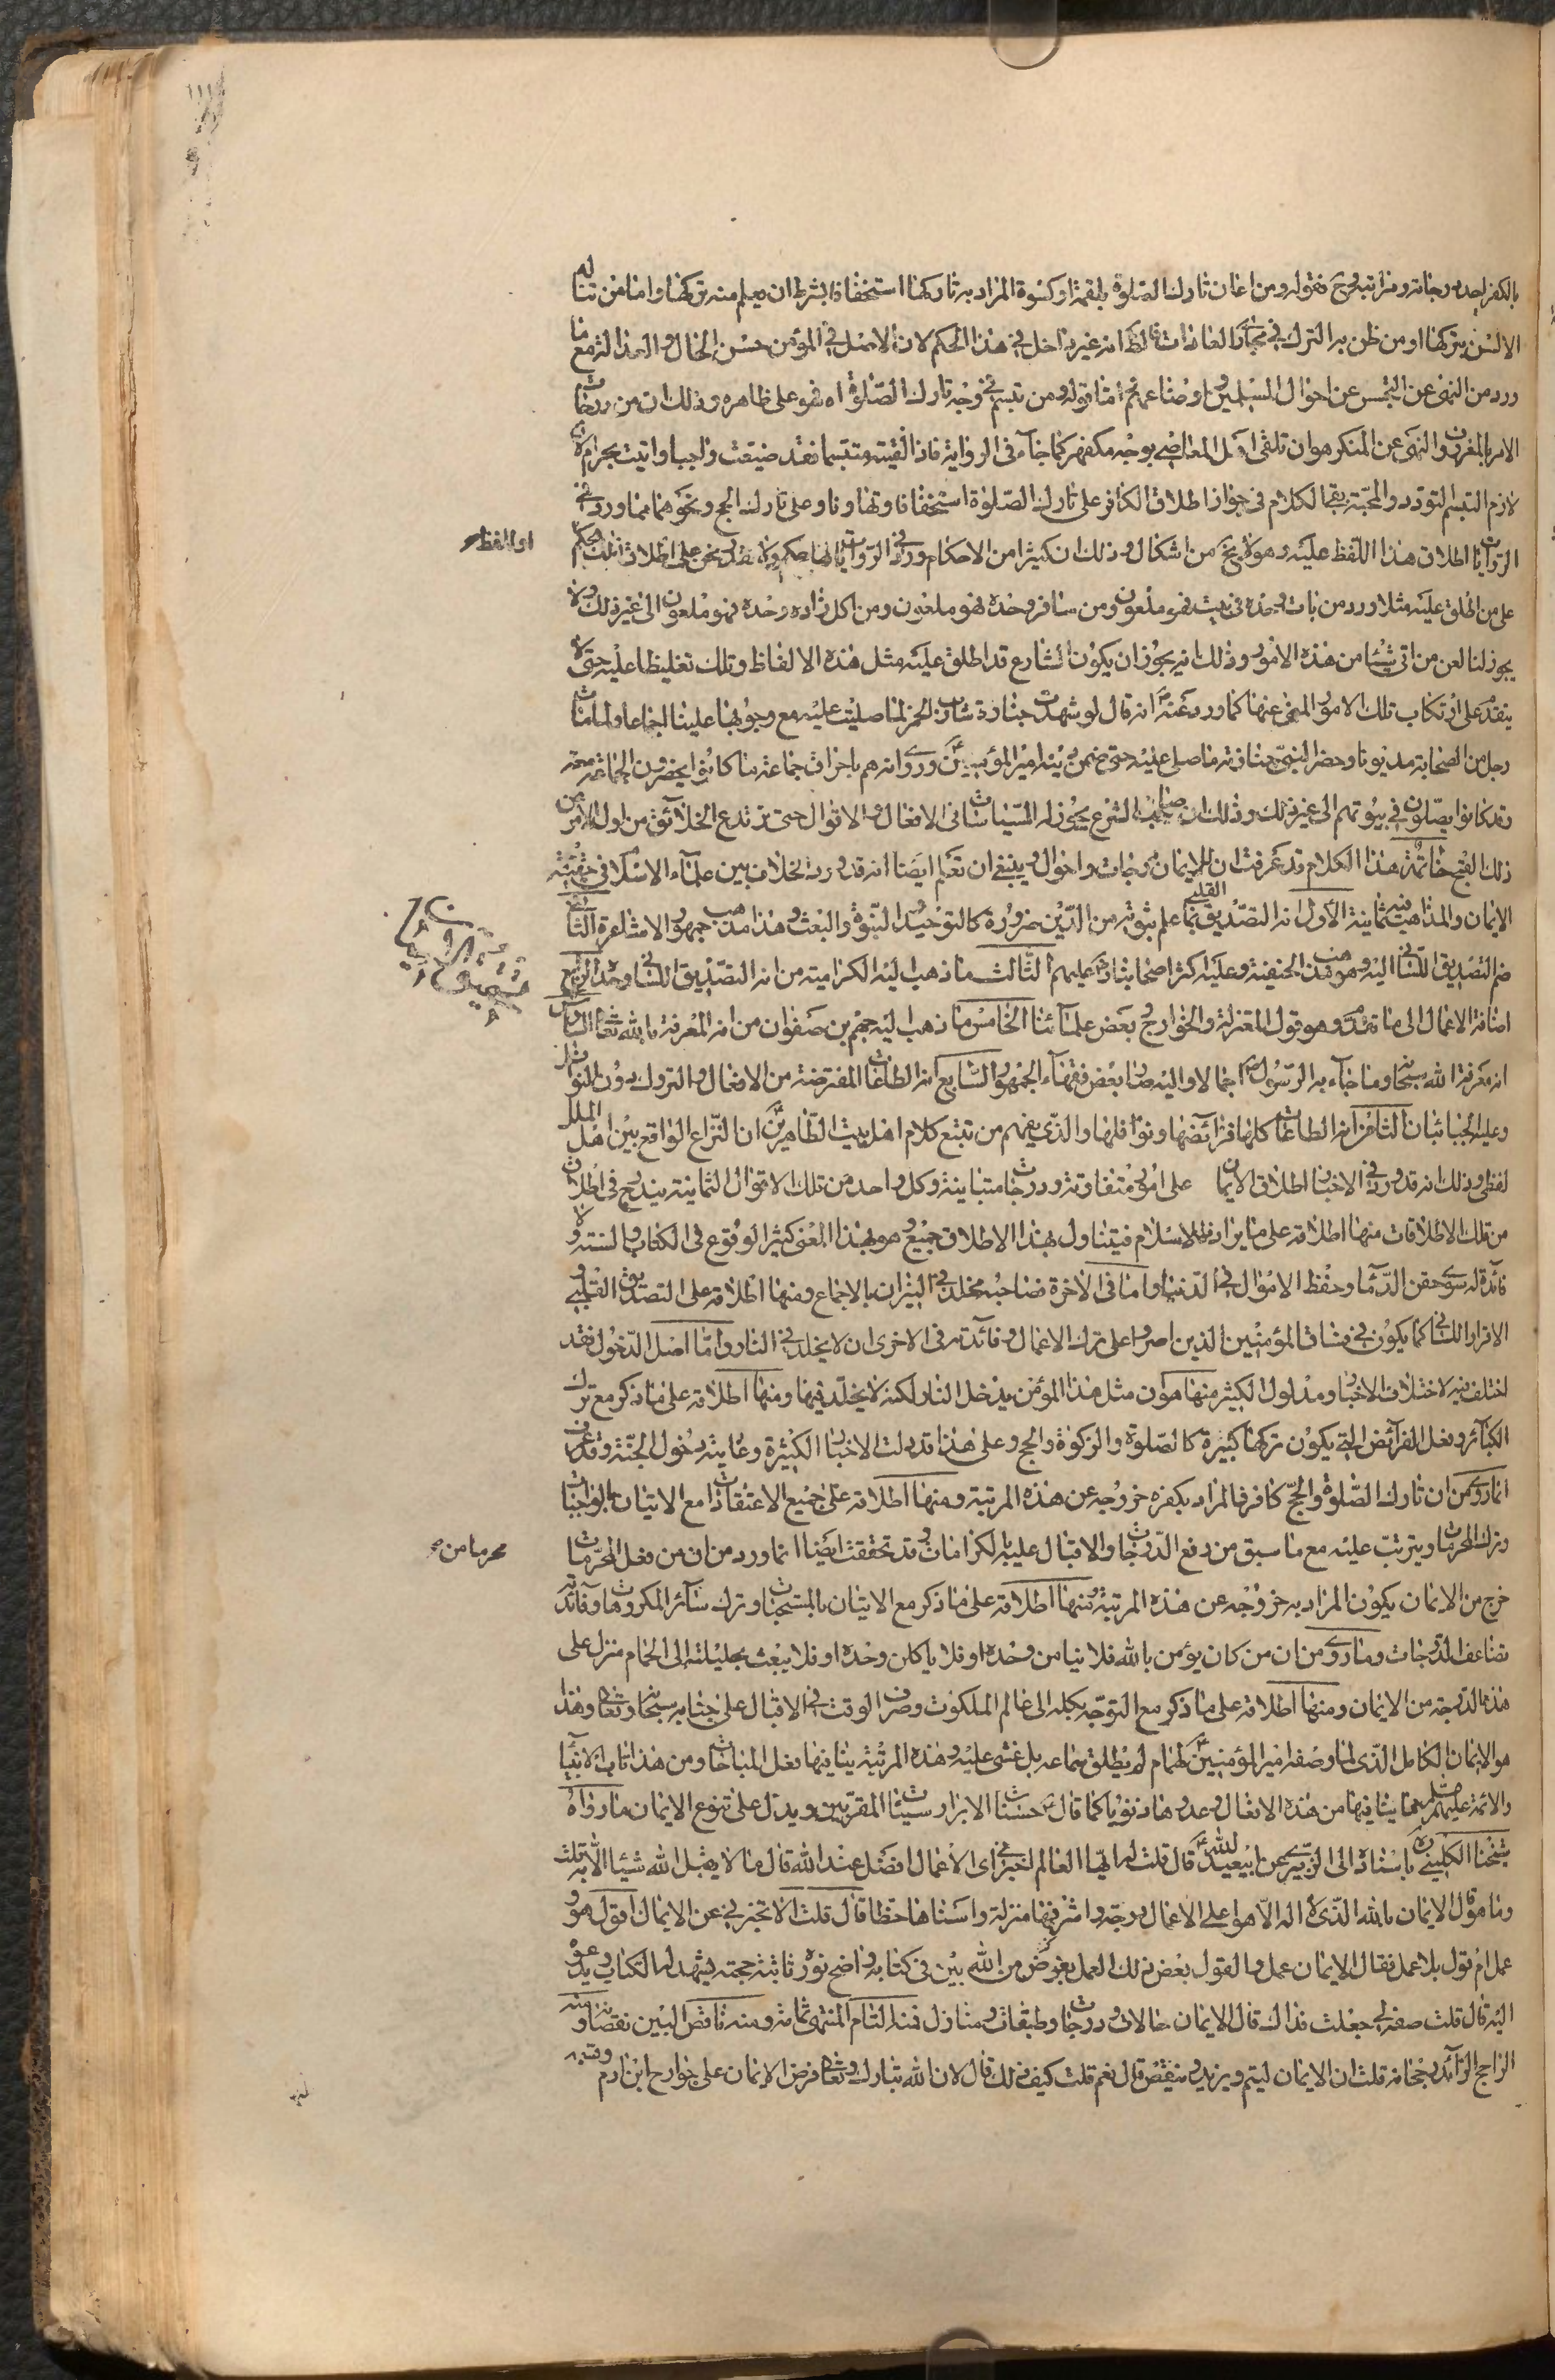 بالكفر احد درجاته ومراتبه وح فقوله ومن اعان تارك الصلوة بلقمة او كسوة المراد به تاركها استخفافا بشرط ان يعلم منه تركها واما من تناله
الالسن بتركها او من ظن به الترك في مجاري العادات فالظ انه غير داخل في هذا الحكم لان الاصل في المؤمن حسن الحال والعدالة مع ما
ورد من النهى عن التجسس عن احوال المسلمين واوضاعهم اما قوله ومن تبسم في وجه تارك الصلوة اه فهو على ظاهره وذلك ان من درجات
الامر بالمعروف والنهى عن المنكر هو ان تلقى اهل المعاصي بوجه مكفهر كما جاء فى الرواية فاذا لقيته متبسما فقد ضيعت واجبا واتيت بحرام لان
لازم التبسم التودد والمحبة بقى الكلام فى جواز اطلاق الكافر على تارك الصلوة استخفافا وتهاونا وعلى تارك الحج ونحوهما مما ورد في
الروايات اطلاق هذا اللفظ عليه وهو لا يخ من اشكال وذلك ان كثيرا من الاحكام ورد في الروايات لها حكم ولا نقدر نحن على اطلاق ذلك الحكم
على من اطلق عليه مثلا ورد من بات وحده فى بيت فهو ملعون ومن سافر وحده فهو ملعون ومن اكل زاده وحده فهو ملعون الى غير ذلك ولا
يجوز لنا لعن من اتى شيئا من هذه الامور وذلك انه يجوز ان يكون الشارع قد اطلق عليه مثل هذه الالفاظ وتلك تغليظا عليه حتى لا
يقدم على ارتكاب تلك الامور المنهى عنها كما ورد عنه انه قال لو شهدت جنازة شارب الخمر لما صليت عليه مع وجوبها علينا اجماعا ولما مات
رجل من الصحابة مديونا وحضر النبي جنازته ما صلى عليه حتى ضمن دينه امير المؤمنين وروى انه هم باحراق جماعة ما كانوا يحضرون الجماعة معه
وقد كانوا يصلون في بيوتهم الى غير ذلك وذلك ان صاحب الشرع يجوز له السياسات فى الافعال والاقوال حتى يرتدع الخلائق من اول الامر عن
ذلك القبح خاتمة هذا الكلام قد عرفت ان للايمان درجات واحوال وينبغي ان تعلم ايضا انه قد ورد الخلاف بين علماء الاسلام فى حقيقة
الايمان والمذاهب فيه ثمانية الاول انه التصديق القلبي بما علم ثبوته من الدين ضرورة كالتوحيد والنبوة والبعث وهذا مذهب جمهور الاشاعرة الثانى
ضم التصديق اللسانى اليه وهو مذهب الحنفية وعليه اكثر اصحابنا رض عليهم الثالث ما ذهب اليه الكرامية من انه التصديق اللسانى وحده الرابع
اضافة الاعمال الى ما تقدم وهو قول المعتزلة والخوارج وبعض علمائنا الخامس ما ذهب اليه جهم بن صفوان من انه المعرفة بالله تعالى السادس
انه معرفة الله سبحانه وما جاء به الرسول اجمالا واليه صار بعض فقهاء الجمهور السابع انه الطاعات المفترضة من الافعال والتروك دون النوافل
وعليه الجبائيان الثامن انه الطاعات كلها فرائضها ونوافلها والذي يفهم من تتبع كلام اهل بيت الطاهرين ان النزاع الواقع بين اهل الملل
لفظى وذلك انه قد ورد في الاخبار اطلاق الايمان على امور متفاوتة ودرجات متباينة وكل واحد من تلك الاقوال الثمانية يندرج فى اطلاق
من تلك الاطلاقات منها اطلاقه على ما يرادف الاسلام فيتناول بهذا الاطلاق جميع وهو بهذا المعنى كثير الوقوع فى الكتاب والسنة ولا
فائدة له سوى حقن الدماء وحفظ الاموال في الدنيا واما فى الآخرة فصاحبه مخلد في النيران بالاجماع ومنها اطلاقه على التصديق القلبي و
الاقرار اللسانى كما يكون في فساق المؤمنين الذين اصروا على ترك الاعمال وفائدته فى الاخرى ان لا يخلد في النار واما اصل الدخول فقد
اختلف فيه لاختلاف الاخبار ومدلول الكثير منها هو ان مثل هذا المؤمن يدخل النار لكنه لا يخلد فيها ومنها اطلاقه على ما ذكر مع ترك
الكبائر وفعل الفرائض التي يكون تركها كبيرة كالصلوة والزكوة والحج وعلى هذا قد دلت الاخبار الكثيرة وغايته دخول الجنة وقد عرفت
ان ما روى من ان تارك الصلوة والحج كافر فالمراد بكفره خروجه عن هذه المرتبة ومنها اطلاقه على جميع الاعتقادات مع الاتيان بالواجبات
وترك المحرمات ويترتب عليه مع ما سبق من رفع الدرجات والاقبال عليه بالكرامات وقد تحققت ايضا ان ما ورد من ان من فعل المحرمات
خرج من الايمان يكون المراد به خروجه عن هذه المرتبة ومنها اطلاقه على ما ذكر مع الاتيان بالمستحبات وترك سائر المكروهات وفائدته
تضاعف الدرجات وما روى من ان من كان يؤمن بالله فلا ينامن وحده او فلا ياكلن وحده او فلا يبعث بحليلته الى الحمام منزل على
هذه الدرجة من الايمان ومنها اطلاقه على ما ذكر مع التوجه بكله الى عالم الملكوت وصرف الوقت في الاقبال على جنابه سبحانه وتعالى وهذا
هو الايمان الكامل الذى لما وصفه امير المؤمنين لهمام لم يطق سماعه بل غشى عليه وهذه المرتبة ينافيها فعل المباحات ومن هذا تاب الانبياء
والائمة عليهم السلم مما ينافيها من هذه الافعال وعدوها ذنوبا كما قال حسنات الابرار سيئات المقربين ويدل على تنوع الايمان ما رواه
شيخنا الكليني ره باسناده الى الزبيري عن ابيعبدالله قال قلت له ايها العالم اخبرنى اى الاعمال افضل عند الله قال ما لا يقبل الله شيئا الا به قلت
وما هو قال الايمان بالله الذى لا اله الا هو اعلى الاعمال درجة واشرفها منزلة واسناها حظا قال قلت الا تخبرني عن الايمان اقول هو و
عمل ام قول بلا عمل فقال الايمان عمل والقول بعض ذلك العمل بفرض من الله بين فى كتابه واضح نوره ثابتة حجته يشهد له الكتاب ويدعو
اليه قال قلت صفه لى جعلت فداك قال الايمان حالات ودرجات وطبقات ومنازل فمنه التام المنتهى تمامه ومنه ناقص البين نقصانه ومنه
الراجح الزائد رجحانه قلت ان الايمان ليتم ويزيد وينقص قال نعم قلت كيف ذلك قال لان الله تبارك وتعالى فرض الايمان على جوارح ابن ادم وقسمه